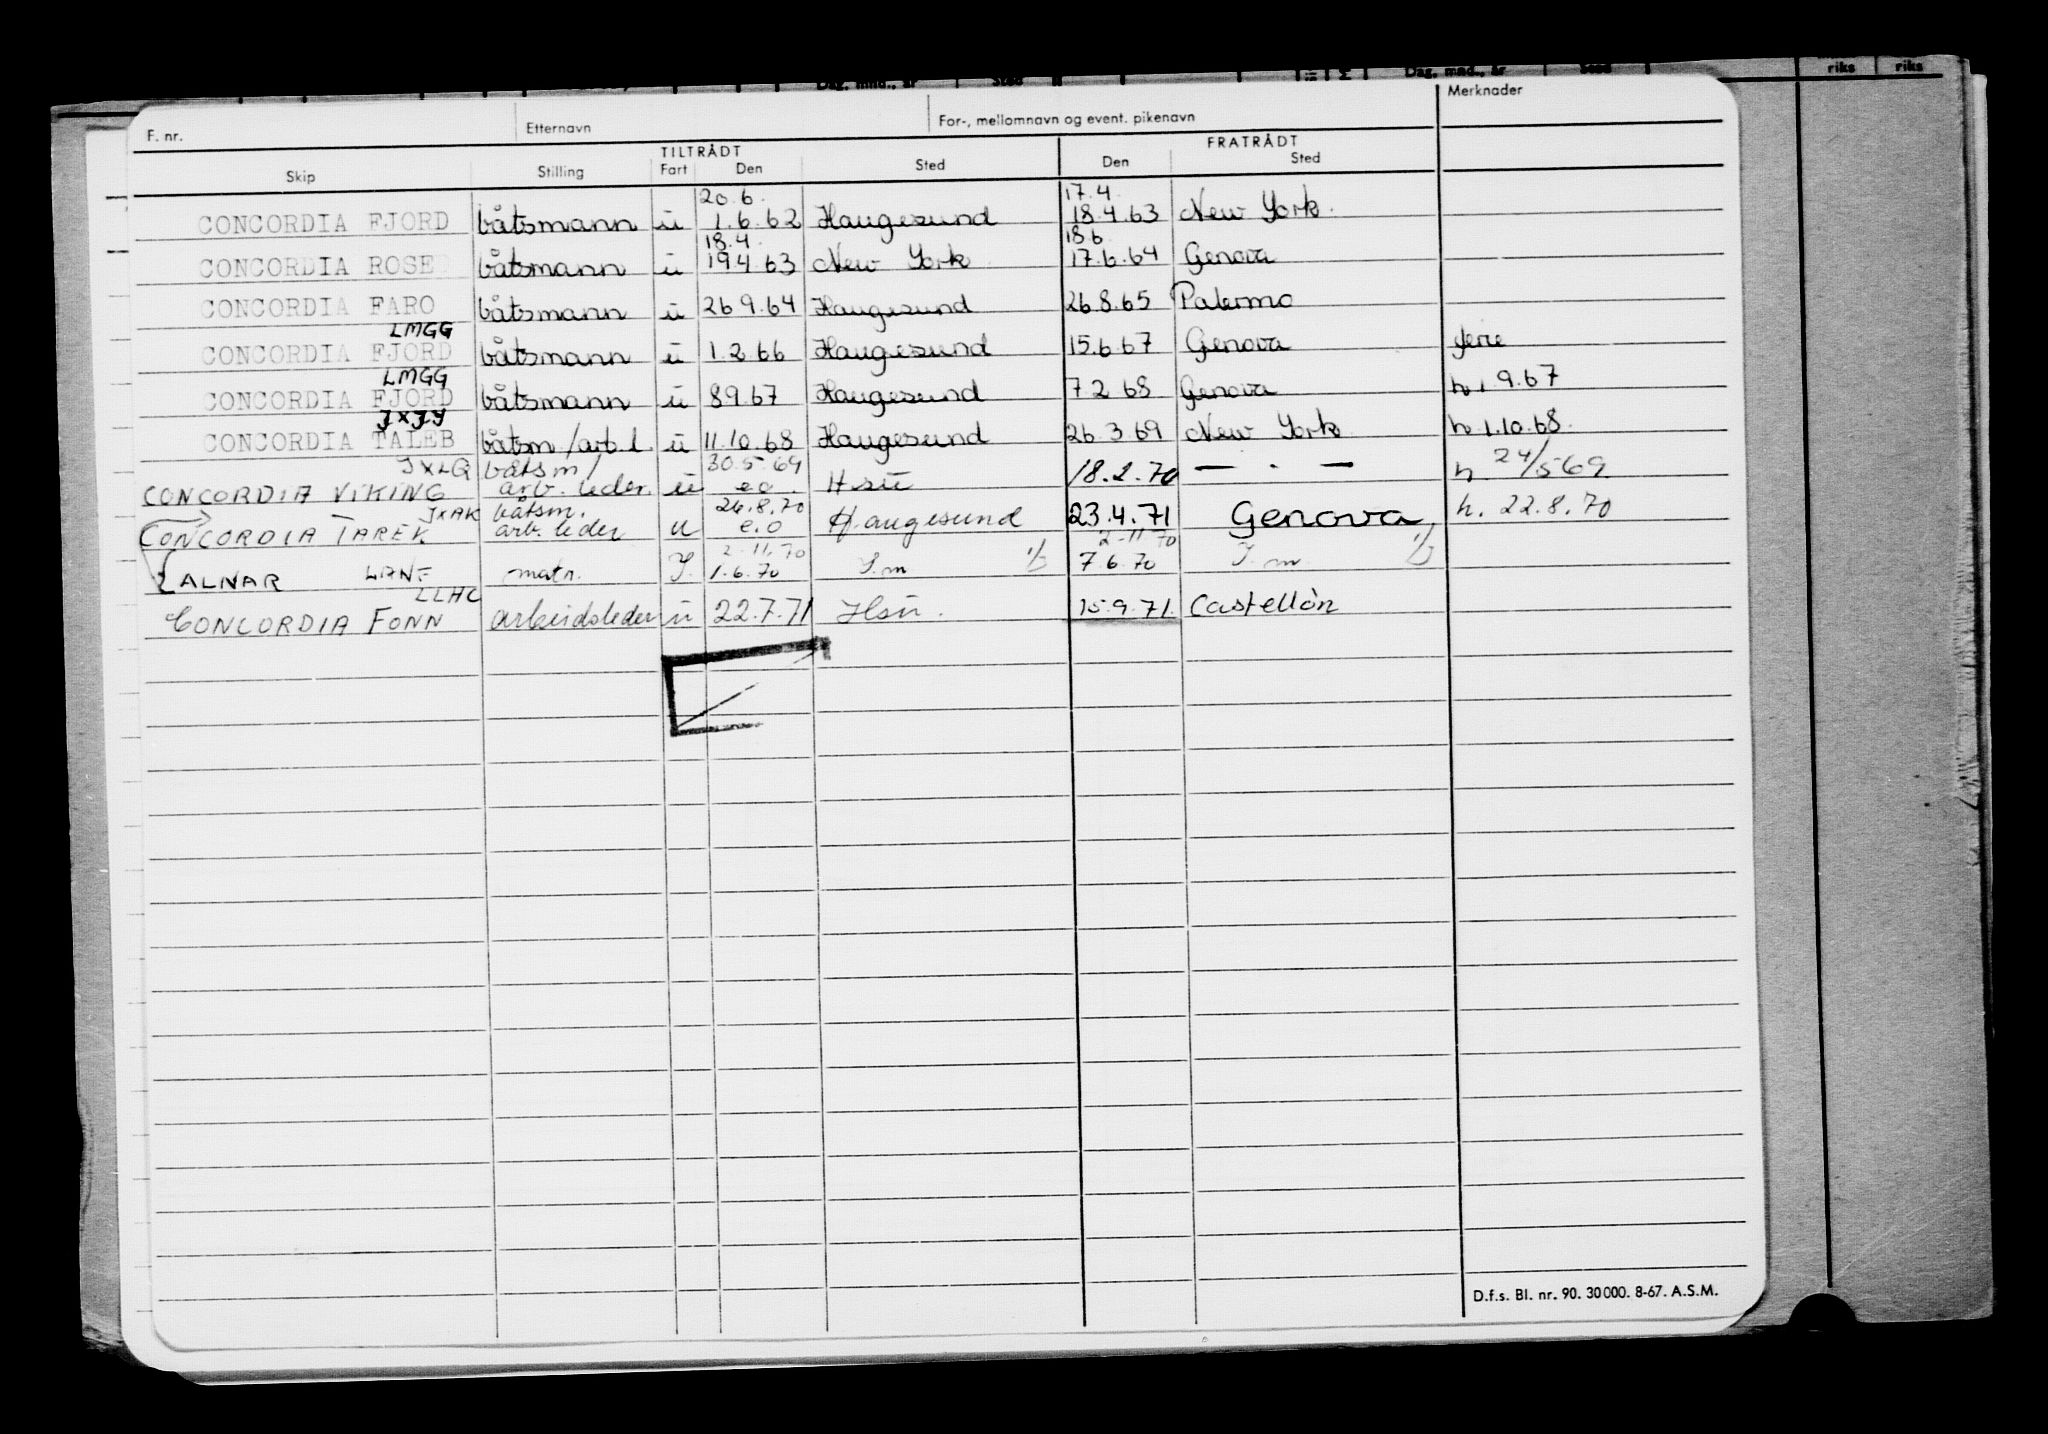 Dag, mnd., år Sted Dag, mnd., år Sted riks riks
F. nr. Etternavn For-, mellomnavn og event. pikenavn Merknader
TILTRÅDT FRATRÅDT
Skip Stilling Fart Den Sted Den Sted
20.6. 17.4.
CONCORDIA FJORD båtsmann ū 1.6.62 Haugesund 18.4.63 New York.
18.4. 18.6
CONCORDIA ROSE båtsmann ū 19.4.63 New York 17.6.64 Genova
CONCORDIA FARO båtsmann ū 26.9.64 Haugesund 26.8.65 Palermo
LMGG
CONCORDIA FJORD båtsmann ū 1.2.66 Haugesund 15.6.67 Genova ferie
LMGG
CONCORDIA FJORD båtsmann ū 8.9.67 Haugesund 7.2.68 Genova h 1.9.67
JXJY
CONCORDIA TALEB båtsm/arb.l ū 11.10.68 Haugesund 26.3.69 New York h 1.10.68.
JXLQ båtsm/ 30.5.69
CONCORDIA VIKING arb. leder. ū eo. Hsū 18.2.70 — . — h. 24/5 69.
JXAK båtsm. 26.8.70
CONCORDIA TAREK arb. leder u e.o Haugesund 23.4.71 Genova h. 22.8.70
2.11.70 2.11.70
ALNAR matr. J. 1.6.70 J.m 7.6.70 J.m.
LLHC
CONCORDIA FONN arbeidsleder ū 22.7.71 Hsū. 15.9.71. Castellòn
D.f.s. Bl. nr. 90. 30000. 8-67. A.S.M.